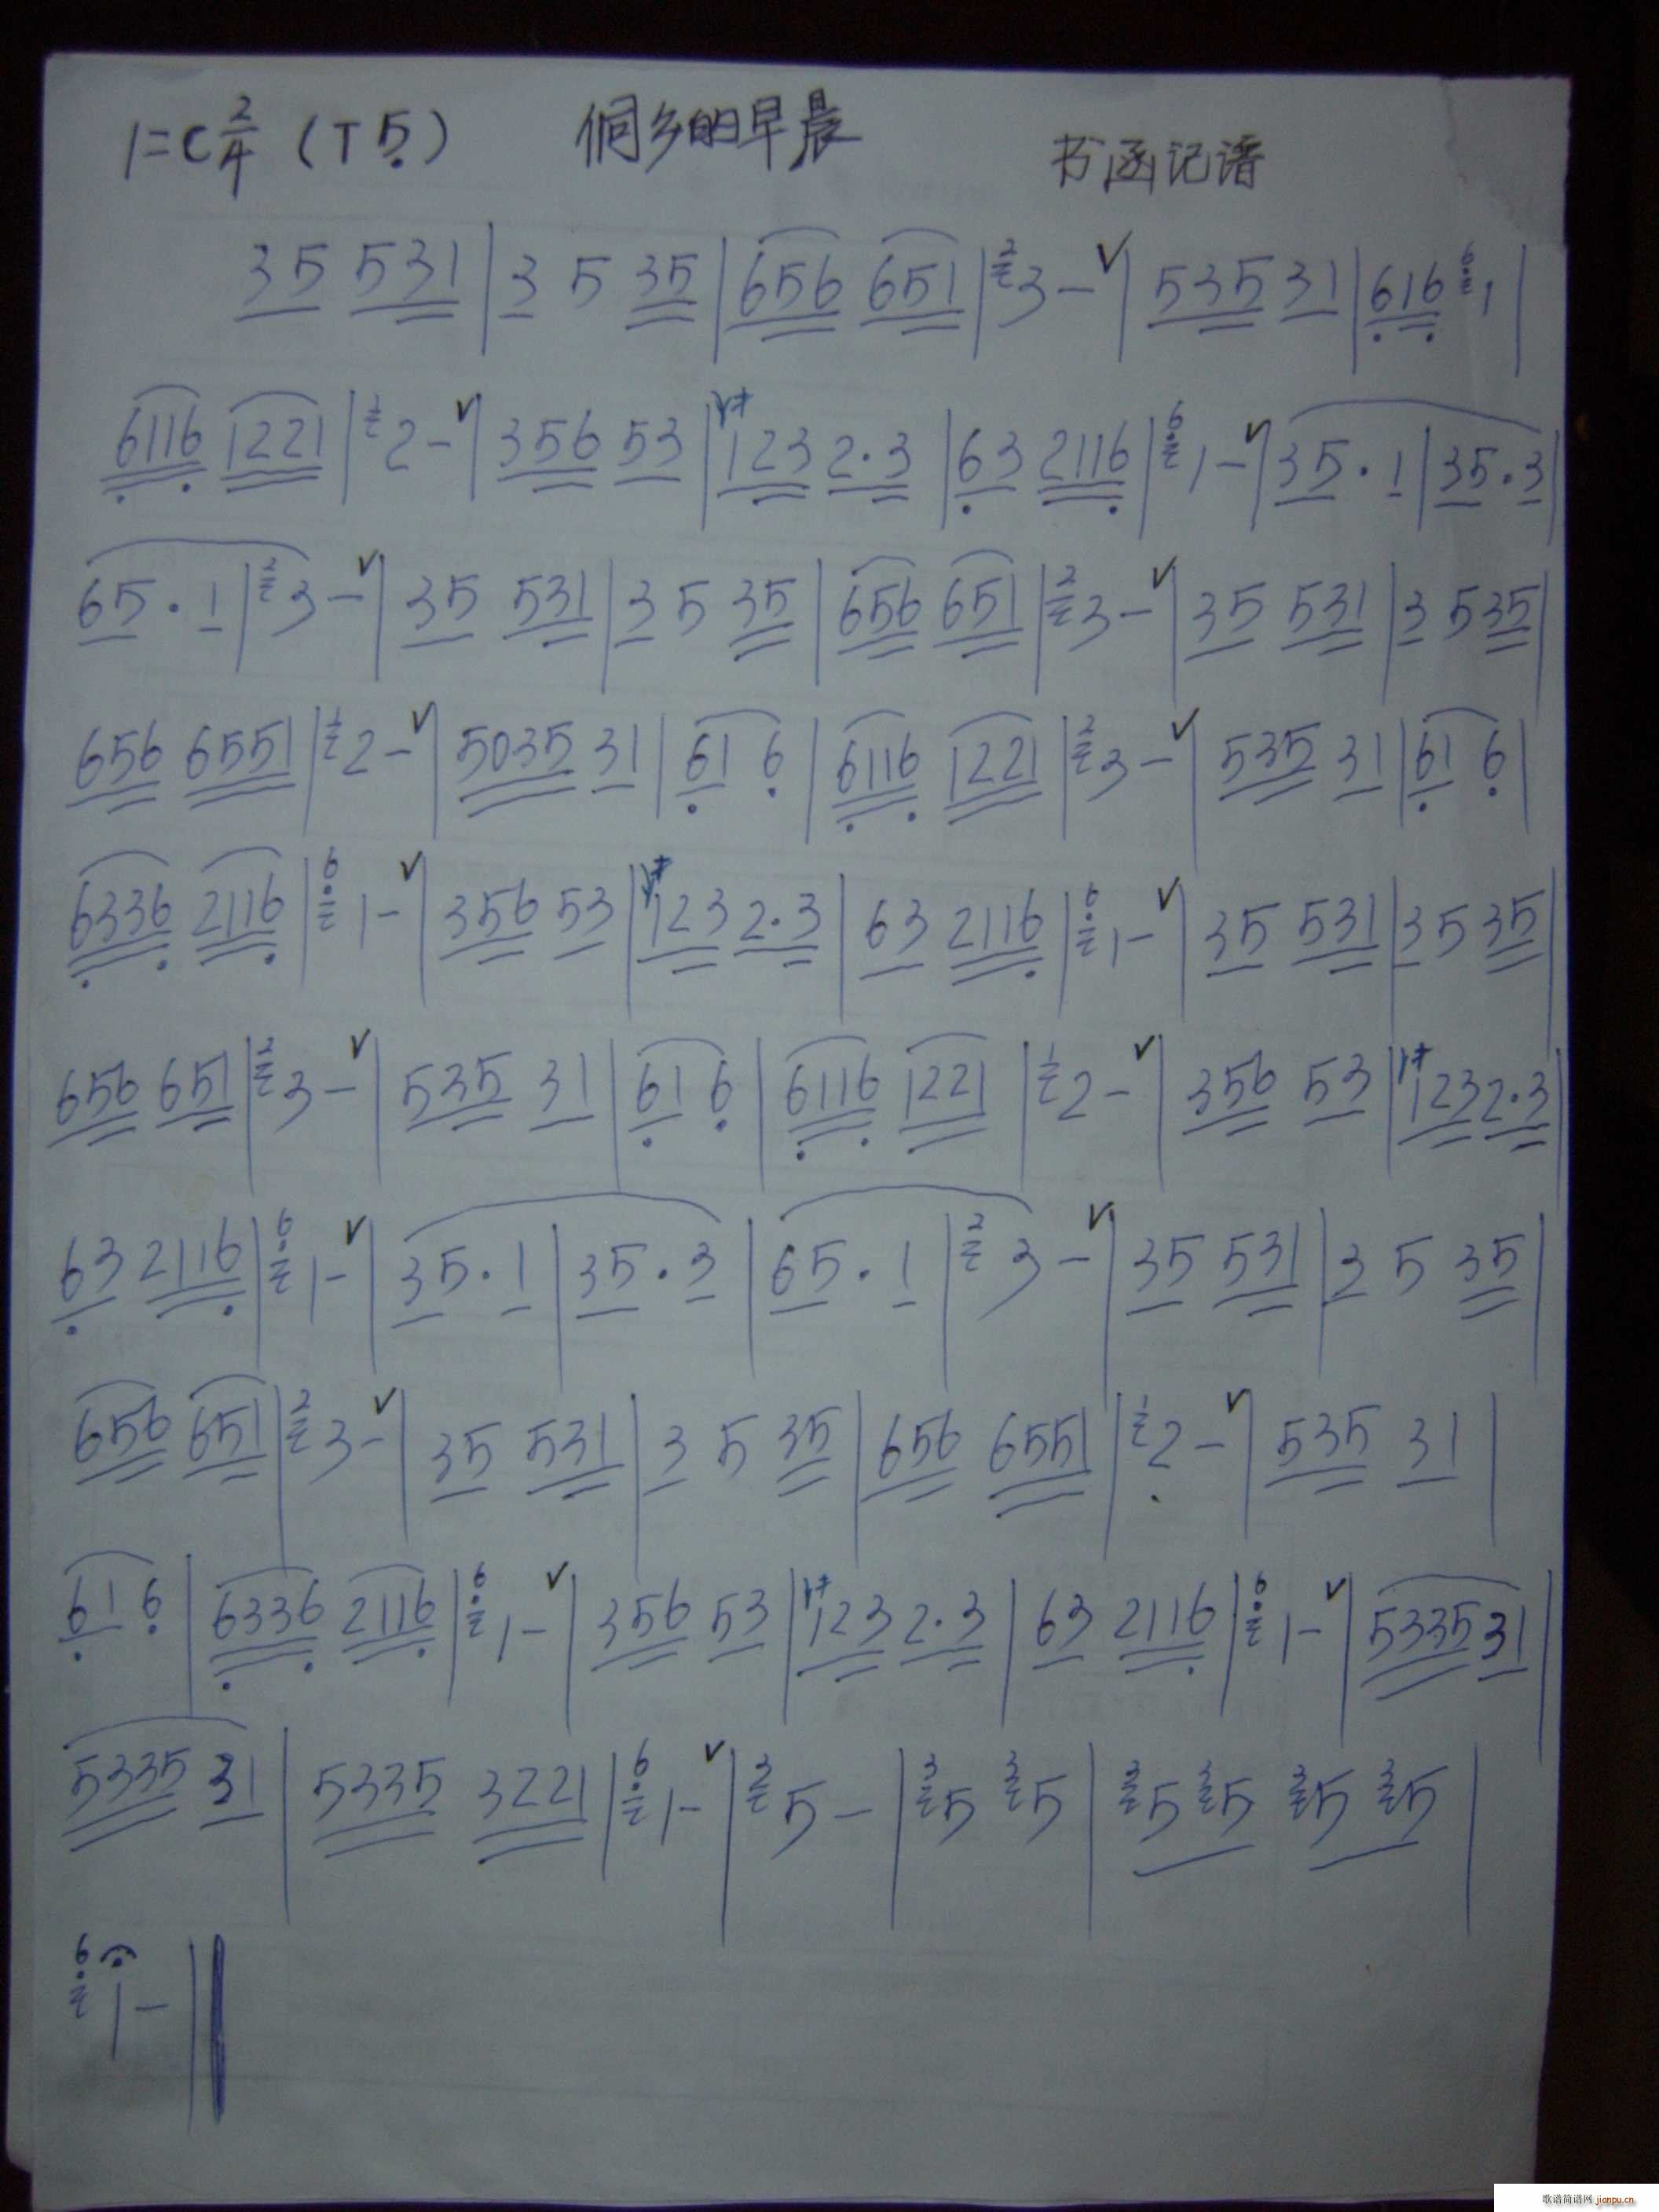 1=C 2/4 (T 5̣) 侗乡的早晨 书函记谱
35 531 | 3 5 35 | 656 651 | ²3 - ∨ | 535 31 | 6̣16̣ ⁶̣1 |
6̣116̣ 1221 | ¹2 - ∨ | 356 53 | 123 2·3 | 6̣3 2116̣ | ⁶̣1 - ∨ | 35·1 | 35·3 |
65·1 | ²3 - ∨ | 35 531 | 3 5 35 | 656 651 | ²3 - ∨ | 35 531 | 3 5 35 |
656 6551 | ¹2 - ∨ | 5035 31 | 6̣1 6̣ | 6̣116̣ 1221 | ²3 - ∨ | 535 31 | 6̣1 6̣ |
6̣336̣ 2116̣ | ⁶̣1 - ∨ | 356 53 | 123 2·3 | 63 2116̣ | ⁶̣1 - ∨ | 35 531 | 3 5 35 |
656 651 | ²3 - ∨ | 535 31 | 6̣1 6̣ | 6̣116̣ 1221 | ¹2 - ∨ | 356 53 | 123 2·3 |
6̣3 2116̣ | ⁶̣1 - ∨ | 35·1 | 35·3 | 65·1 | ²3 - ∨ | 35 531 | 3 5 35 |
656 651 | ²3 - ∨ | 35 531 | 3 5 35 | 656 6551 | ¹2 - ∨ | 535 31 |
6̣1 6̣ | 6̣336̣ 2116̣ | ⁶̣1 - ∨ | 356 53 | 123 2·3 | 63 2116̣ | ⁶̣1 - ∨ | 5335 31 |
5335 31 | 5335 3221 | ⁶̣1 - ∨ | ³5 - | ³5 ³5 | ³5 ³5 ³5 ³5 |
⁶̣1 - ‖
歌谱简谱网 jianpu.cn